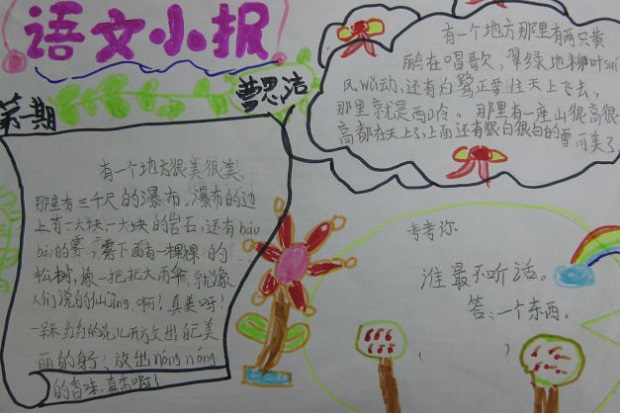 语文小报
第一期
曹思洁
有一个地方很美很美,
那里有三千尺的瀑布。瀑布的边
上有一大块一大块的岩石,还有bái
bái的雾,雾下面有一棵棵的
松树,像一把把大雨伞,就像
人们说的仙jìng,啊!真美呀!
花儿开放出自己美
丽的身子,放出nóng nóng
的香味,真香啊!
有一个地方那里有两只黄
鹂在唱歌,翠绿地柳叶suí
风wǔ动,还有白鹭正要往天上飞去,
那里就是西岭。那里有一座山很高很
高都在天上了,上面还有很白很白的雪可美了
考考你
谁最不听话。
答:一个东西。
( )